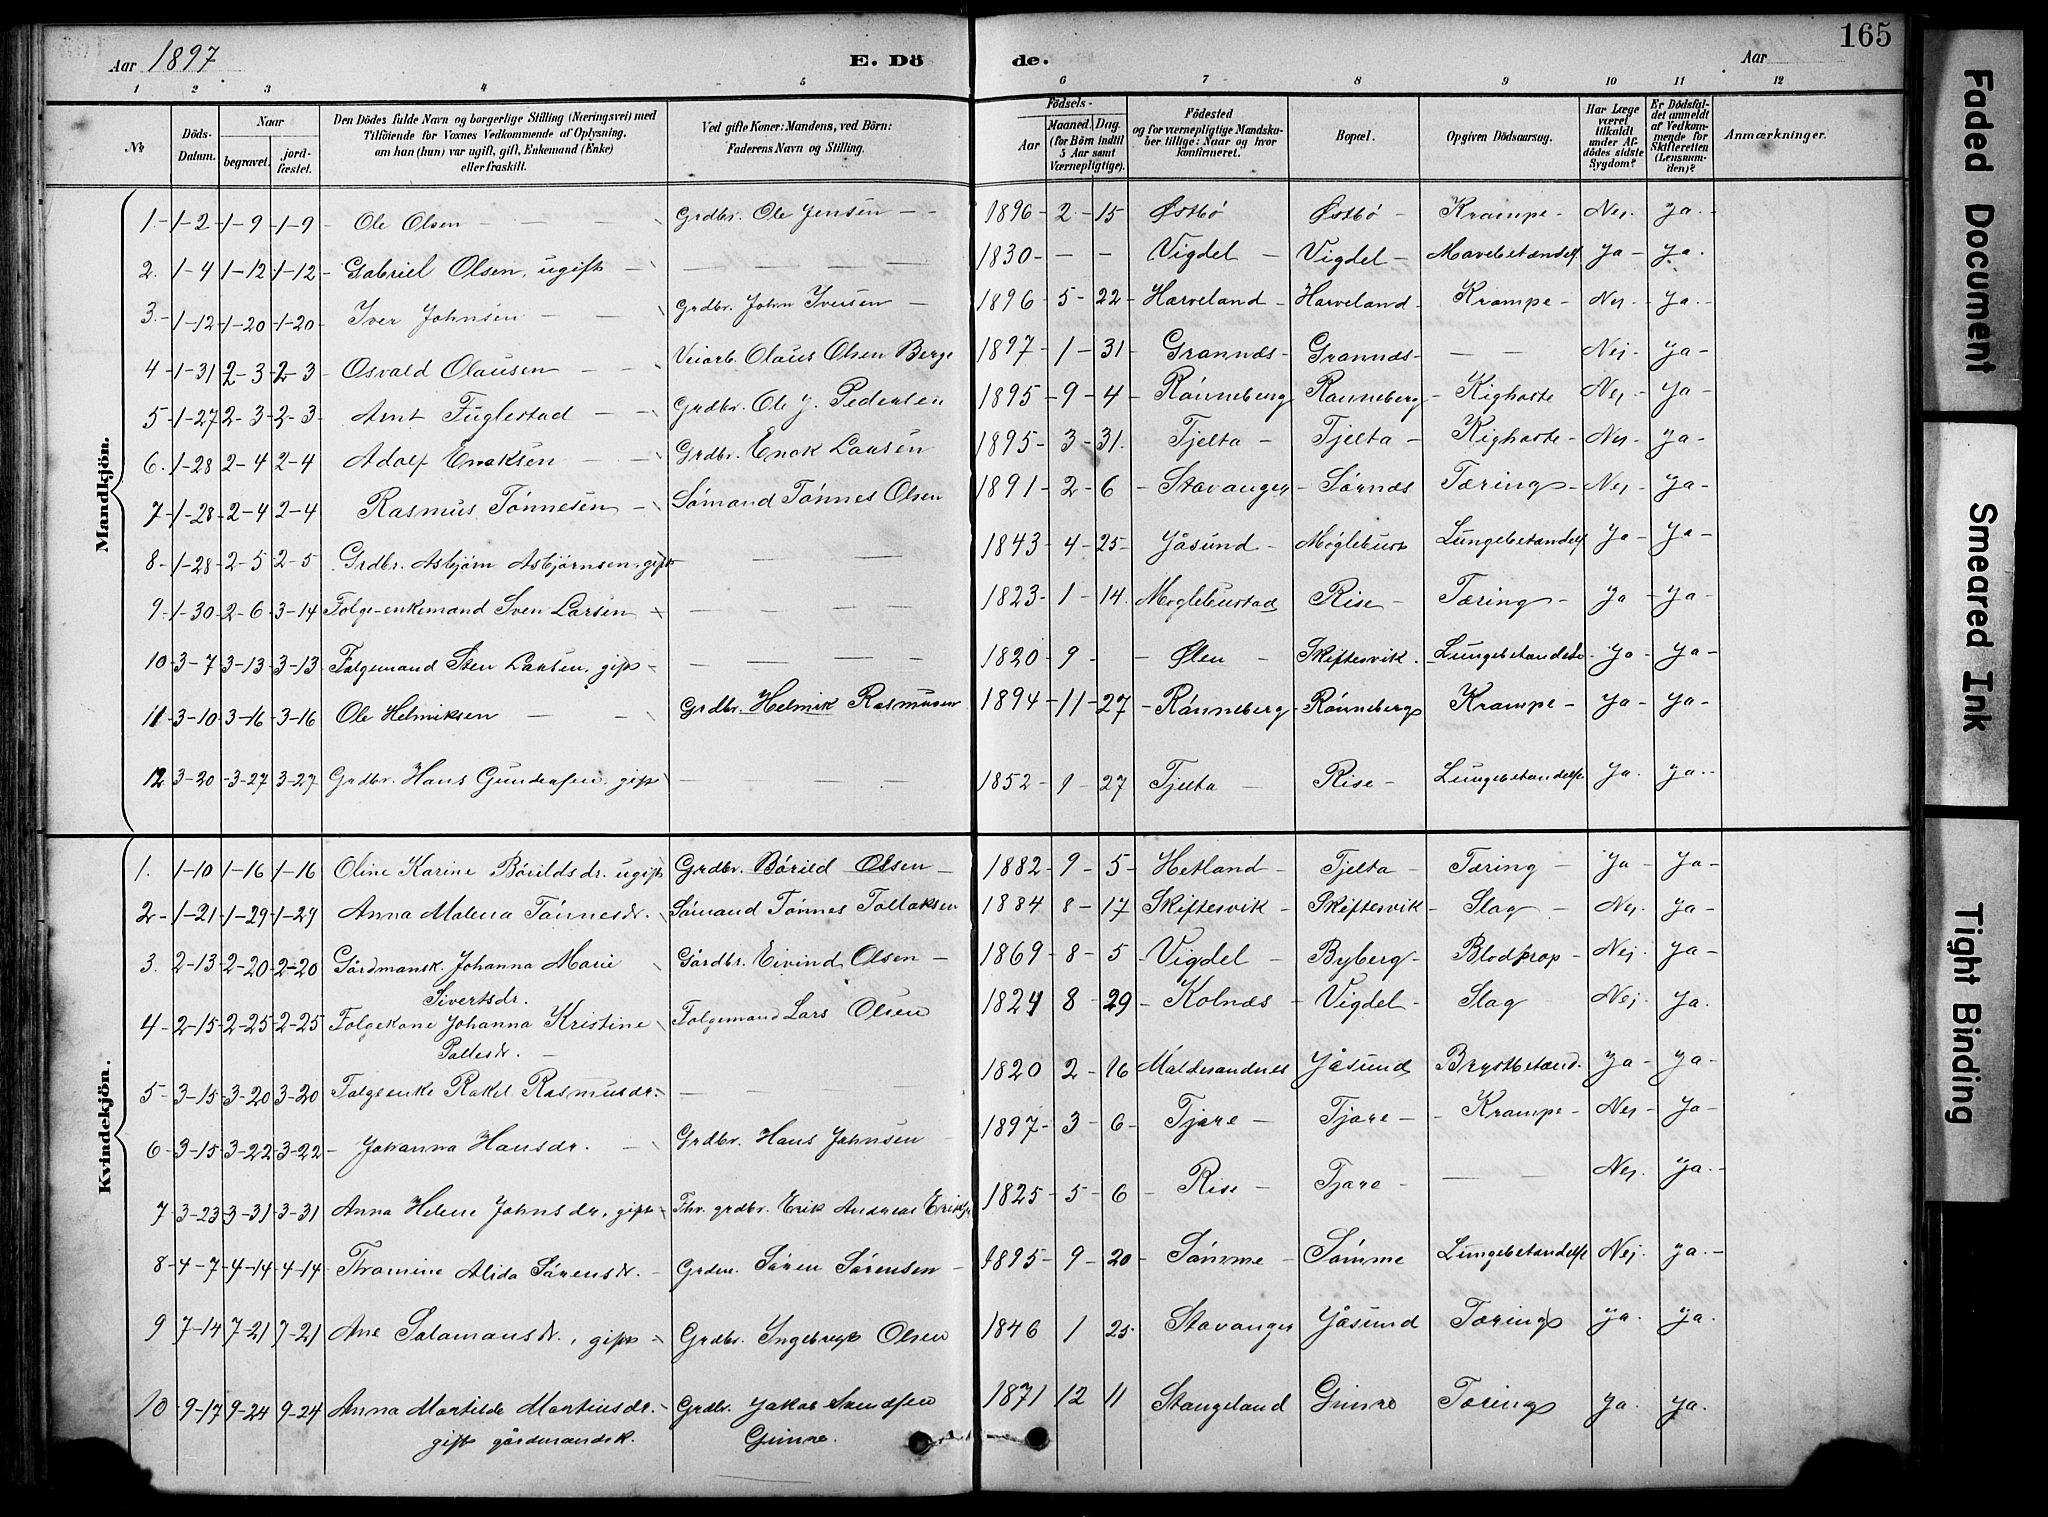 165
Aar 1897 E. Dö de. Aar
1 2 3 4 5 6 7 8 9 10 11 12
No Döds-Datum. Naar begravet. jord-fæstet. Den Dödes fulde Navn og borgerlige Stilling (Næringsvei) med Tilföiende for Voxnes Vedkommende af Oplysning, om han (hun) var ugift, gift, Enkemand (Enke) eller fraskilt. Ved gifte Koner: Mandens, ved Börn: Faderens Navn og Stilling. Födsels- Aar Maaned. Dag. (for Börn indtil 5 Aar samt Værnepligtige). Födested og for værnepligtige Mandskaber tillige: Naar og hvor konfirmeret. Bopæl. Opgiven Dödsaarsag. Har Læge været tilkaldt under Afdödes sidste Sygdom? Er Dödsfaldet anmeldt af Vedkommende for Skifteretten (Lensmanden)? Anmærkninger.
Mandkjön.
1 - 1-2 - 1-9 - 1-9 - Ole Olsen - Grdbr. Ole Jensen - 1896 - 2 - 15 Østbø Østbø - Krampe - Nej - Ja -
2. 1-4 1-12 1-12 - Gabriel Olsen, ugift - 1830 - - - Vigdel - Vigdel - Mavebetændels Ja - Ja.
3. - 1-12 1-20 1-20 - Iver Johnsen - Grdbr. John Iversen - 1896 - 5 - 22 - Harveland - Harveland - Krampe - Nej - Ja. -
4 - 1-31 2-3 2-3 - Osvald Olausen - Veiarb. Olaus Olsen Berge 1897 - 1 - 31 - Grannæs - Grannæs - Nej - Ja -
5 - 1-27 2-3 2-3 - Arnt Fuglestad - Grdbr. Ole J. Pedersen 1895 - 9 - 4 - Rönneberg Rönneberg - Kighoste - Nej - Ja -
6. 1-28 2-4 2-4 - Adolf Enoksen - Grdbr. Enok Larsen 1895 - 3 - 31. Tjelta - Tjelta - Kighoste - Nej - Ja -
7 - 1-28 - 2-4 2-4 Rasmus Tönnesen - Sömand Tönnes Olsen 1891 - 2 - 6 - Stavanger - Sörnæs Tæring - Nej - Ja -
8 - 1-28 2-5 2-5 Grdbr. Asbjørn Asbjørnsen, gift 1843 - 4 - 25 - Jåsund - Møglebust Lungebetændels Ja - Ja -
9 - 1-30 2-6 3-14 Folge-enkemand Sven Larsen 1823 - 1 - 14. Møglebustad Rise - Tæring - Ja - Ja -
10 - 3-7 3-13 3-13 Folgemand Sten Larsen, gift - 1820 - 9 - Ølen - Skiftesvik. Lungebetændelse - Ja - Ja -
11 - 3-10 3-16 - 3-16 Ole Helmiksen - Grdbr. Helmik Rasmusen 1894 - 11 - 27 - Rönneberg - Rönneberg Krampe - Ja - Ja -
12 3-20 - 3-27 3-27 Grdbr. Hans Gundersen, gift 1852 - 9 - 27 Tjelta - Rise - Lungebetændelse Ja - Ja. -
Kvindekjön.
1. 1-10 1-16 1-16 Oline Karine Börildsdr. ugift Grdbr. Börild Olsen - 1882 - 9 - 5 - Hetland - Tjelta - Tæring - Ja - Ja -
2 - 1-21 - 1-29 1-29 - Anna Malena Tönnesdr. Sömand Tönnes Tollaksen 1884 - 8 - 17 Skiftesvik - Skiftesvik - Slag - Nej - Ja -
3. 2-13 - 2-20 2-20 Gårdmansk. Johanna Marie Gårdbr. Eivind Olsen - 1869 - 8 - 5 - Vigdel - Byberg - Blodprop - Nej - Ja -
Sivertsdr.
4 - 2-15 - 2-25 - 2-25 Folgekone Johanna Kristine Folgemand Lars Olsen 1824 8 - 29 - Kolnæs - Vigdel - Slag Nej Ja.
Pallesdr. -
5 - 3-15 3-20 3-20 Folgeenke Rakel Rasmusdr. 1820 - 2 - 16 Maldesandnes Jåsund Brystbetænd. Ja - Ja -
6 - 3-15 3-22 3-22 - Johanna Hansdr. - Grdbr. Hans Johnsen 1897 - 3 - 6 - Tjøre - Tjøre - Krampe - Nej - Ja -
7 - 3-23 3-31 3-31 - Anna Helene Johnsdr. gift - Fhv. grdbr. Erik Andreas 1825 - 5 - 6 - Rise - Tjøre - Nej Ja. -
8 - 4-7 4-14 4-14 Thomine Alida Sørensdr. - Grdbr. Søren Sørensen 1895 - 9 - 20 - Sömme - Sömme Lungebetændelse Nej Ja. -
9 7-14 7-21 7-21 Ane Salamansdr., gift - Grdbr. Ingebregt Olsen 1846 1 25 - Stavanger Jåsund Tæring Ja. Ja.
10 9-17 9-24 9-24 Anna Martilde Martinsdr. Grdbr. Jakob 1871 12 11 Stangeland Gimre Tæring Ja Ja.
gift gårdmandsk. Gimre.
Faded Document
Smeared Ink
Tight Binding